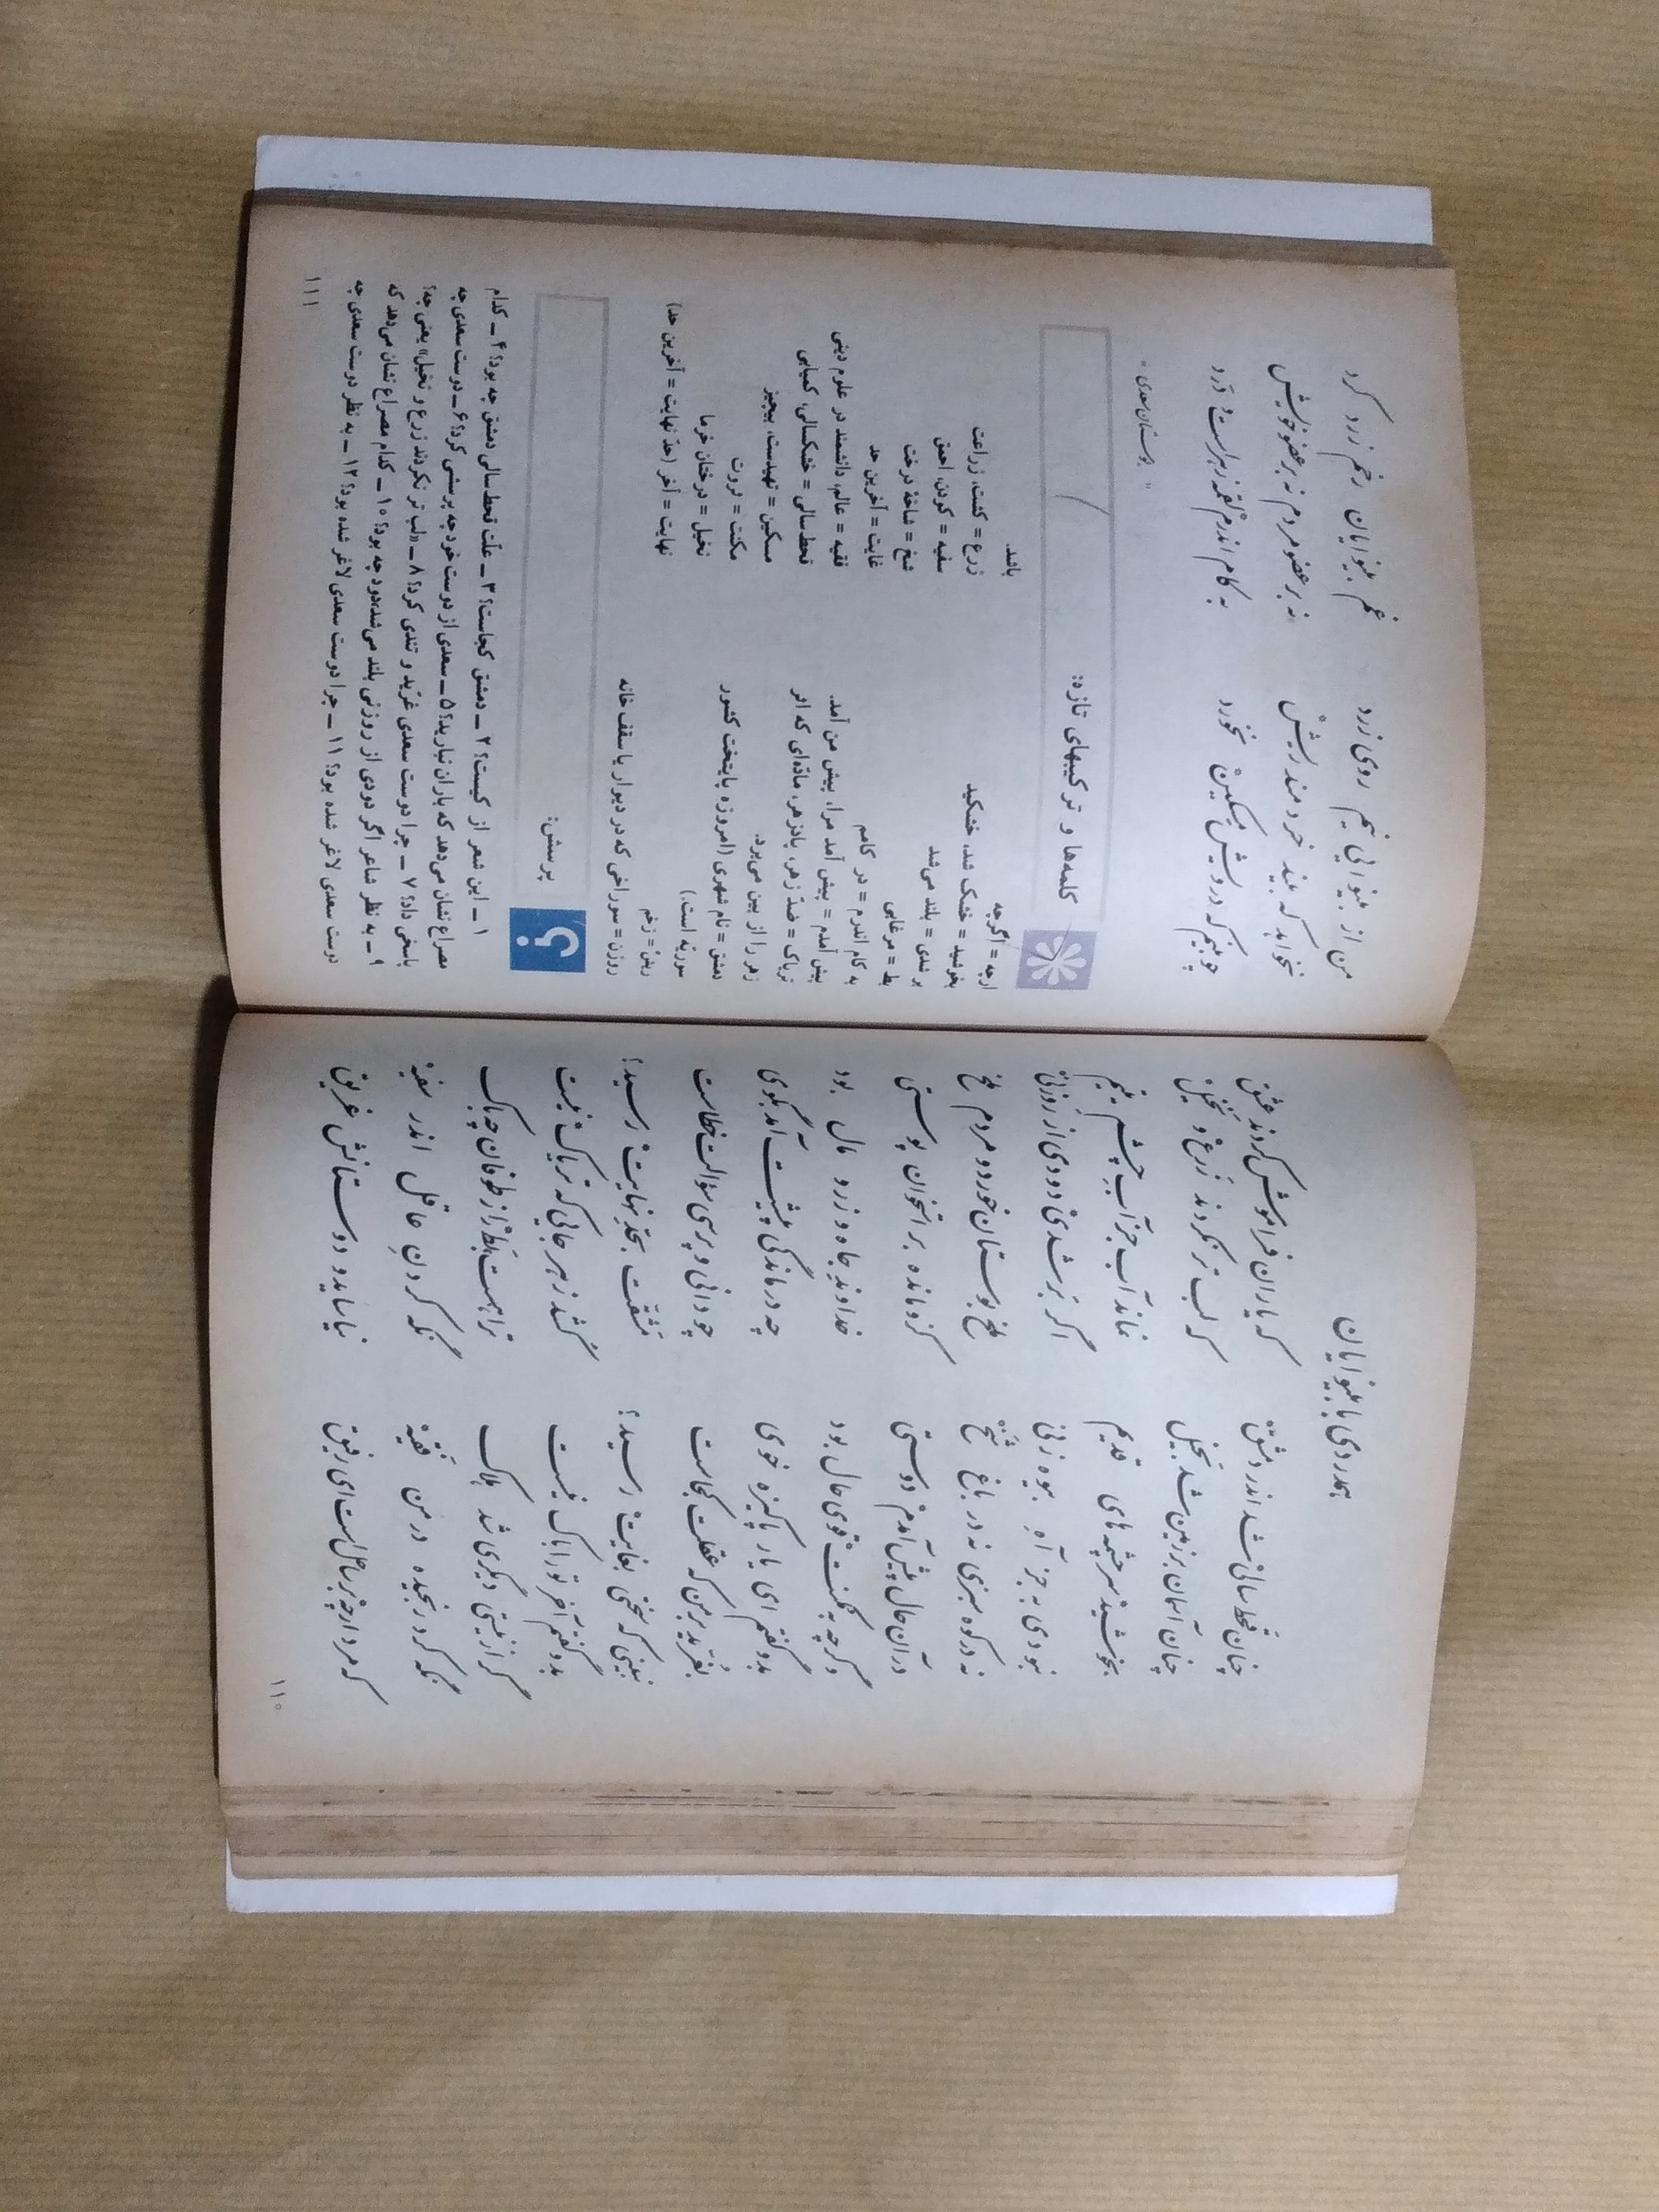 همدردی با بینوایان
چنان قحط سالی شد اندر دمشق که یاران فراموش کردند عشق
چنان آسمان بر زمین شد بخیل که لب تر نکردند زَرع و نَخیل
بخوشید سرچشمه‌های قدیم نماند آب جز آبِ چشمِ یتیم
نبودی به جز آهِ بیوه زنی اگر بَر شدی دودی از روزنی
نه در کوه سبزی نه در باغ شَخ ملخ بوستان خورد و مردم ملخ
در آن حال پیش آمدم دوستی کزو مانده بر استخوان پوستی
وگرچه به مکنت قوی حال بود خداوندِ جاه و زر و مال بود
بدو گفتم ای یار پاکیزه خوی چه درماندگی پیشت آمد بگوی
بُغرّید بر من که عقلت کجاست چو دانی و پرسی سؤالت خطاست
نبینی که سختی بغایت رسید؟ مَشقّت بحدِّ نهایت رسید؟
بدو گفتم آخر تو را باک نیست کُشَد زهر جایی که تریاک نیست
گر از نیستی دیگری شد هلاک تو را هست، بَط را ز طوفان چه باک
نگه کرد رنجیده در من فَقیه نگه کردنِ عاقل اندر سفیه
که مرد ارچه بر ساحل است ای رفیق نیاساید و دوستانش غریق
۱۱۰
من از بینوایی نیَم روی زرد غم بینوایان رخم زرد کرد
نخواهد که بیند خردمند ریش نه بر عضو مردم نه بر عضو خویش
چو بینم که درویش مسکین نخورد به کام اندرم لقمه زهر است و درد
« بوستان سعدی »
کلمه‌ها و ترکیبهای تازه:
ارچه = اگرچه
بخوشید = خشک شد، خشکید
بر شدی = بلند می‌شد
بط = مرغابی
به کام اندرم = در کامم
پیش آمدم = پیش آمد مرا، پیش من آمد.
تریاک = ضدّ زهر، پادزهر، ماده‌ای که اثر
زهر را از بین می‌برد.
دمشق = نام شهری (امروزه پایتخت کشور
سوریّه است.)
ریش = زخم
روزن = سوراخی که در دیوار یا سقف خانه
باشد.
زرع = کشت، زراعت
سفیه = کودن، احمق
شخ = شاخهٔ درخت
غایت = آخرین حد
فقیه = عالم، دانشمند در علوم دینی
قحط‌سالی = خشکسالی، کمیابی
مسکین = تهیدست، بیچیز
مکنت = ثروت
نخیل = درختان خرما
نهایت = آخر (حدّ نهایت = آخرین حد)
پرسش:
۱ ــ این شعر از کیست؟ ۲ ــ دمشق کجاست؟ ۳ ــ علّت قحط‌سالی دمشق چه بود؟ ۴ ــ کدام
مصراع نشان می‌دهد که باران نبارید؟ ۵ ــ سعدی از دوست خود چه پرسشی کرد؟ ۶ ــ دوست سعدی چه
پاسخی داد؟ ۷ ــ چرا دوست سعدی غرّید و تندی کرد؟ ۸ ــ «لب تر نکردند زرع و نخیل» یعنی چه؟
۹ ــ به نظر شاعر اگر دودی از روزنی بلند می‌شد،دود چه بود؟ ۱۰ ــ کدام مصراع نشان می‌دهد که
دوست سعدی لاغر شده بود؟ ۱۱ ــ چرا دوست سعدی لاغر شده بود؟ ۱۲ ــ به نظر دوست سعدی چه
۱۱۱